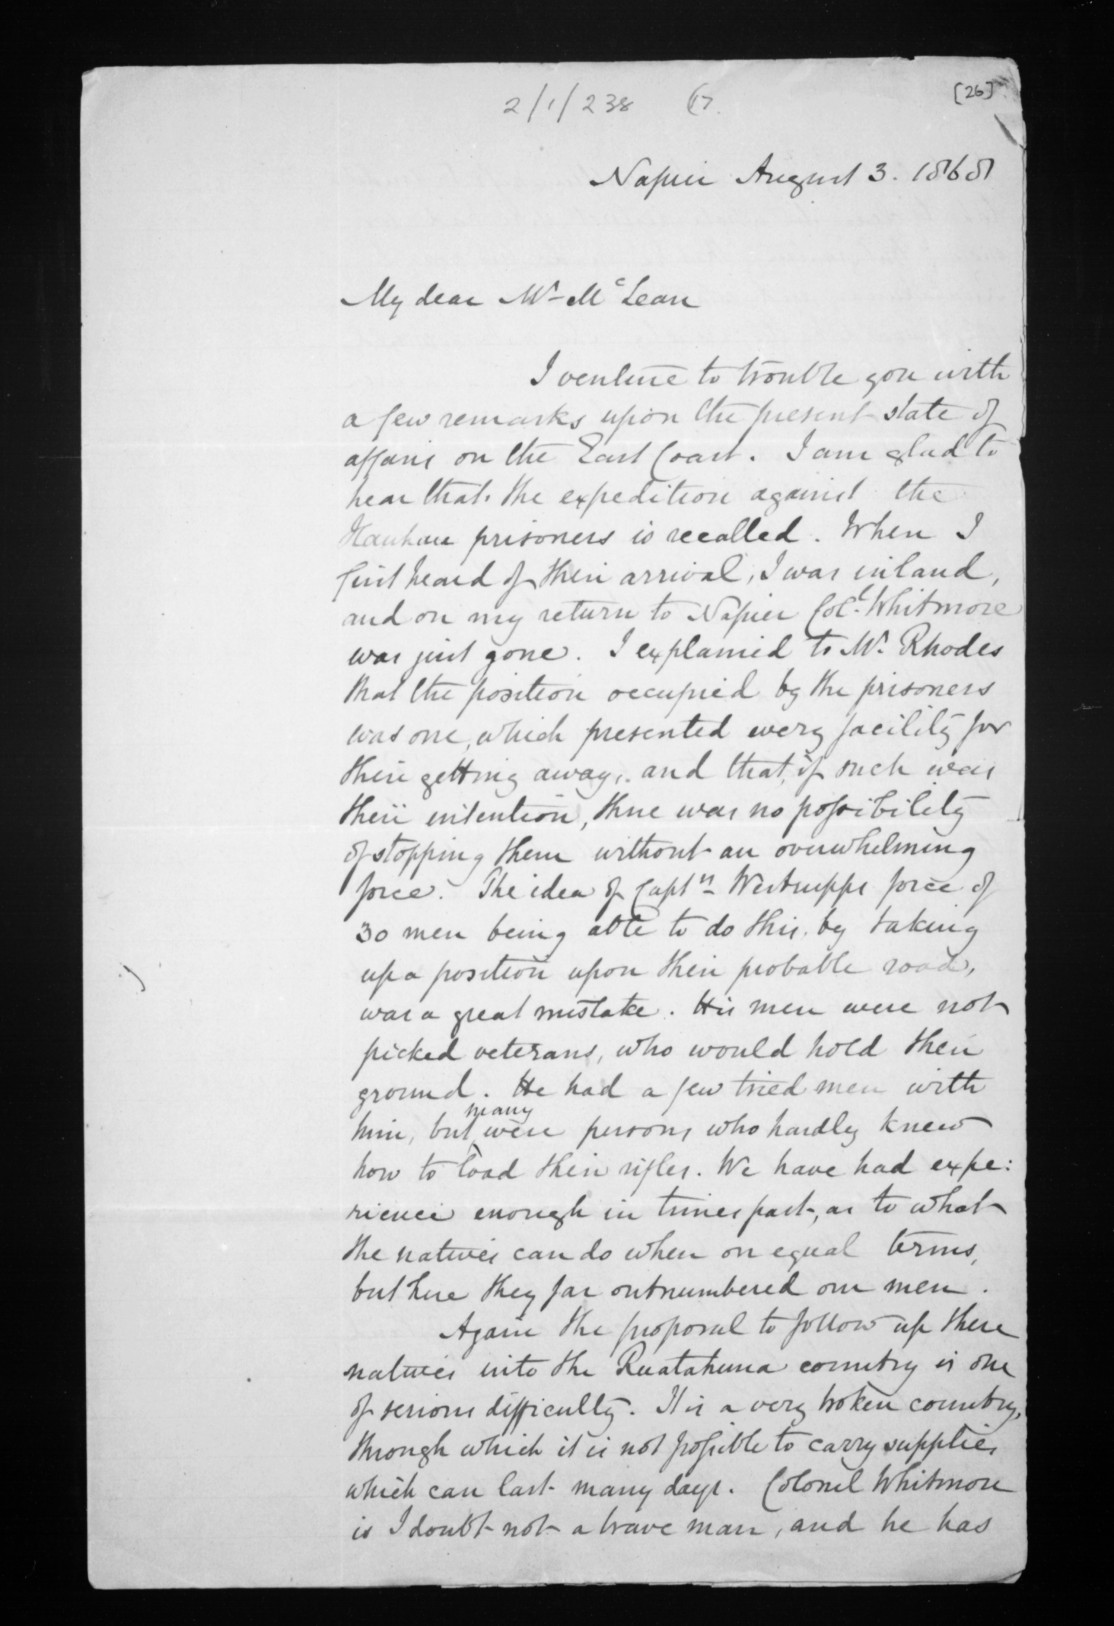 2/1/238 17.
[26]
Napier August 3. 1868
My dear Mr McLean
I venture to trouble you with
a few remarks upon the present state of
affairs on the East Coast. I am glad to
hear that the expedition against the
Hauhau prisoners is recalled. When I
first heard of their arrival, I was inland,
and on my return to Napier Col. Whitmore
was just gone. I explained to Mr. Rhodes
that the position occupied by the prisoners
was one, which presented every facility for
their getting away, and that, if such was
their intention, there was no possibility
of stopping them without an overwhelming
force. The idea of Captn Westrupps force of
30 men being able to do this, by taking
up a position upon their probable road,
was a great mistake. His men were not
picked veterans, who would hold their
ground. He had a few tried men with
him, but many were persons who hardly knew
how to load their rifles. We have had expe:
rience enough in times past, as to what
the natives can do when on equal terms,
but here they far outnumbered our men.
Again the proposal to follow up these
natives into the Ruatahuna country is one
of serious difficulty. It is a very broken country,
through which it is not possible to carry supplies
which can last many days. Colonel Whitmore
is I doubt not a brave man, and he has